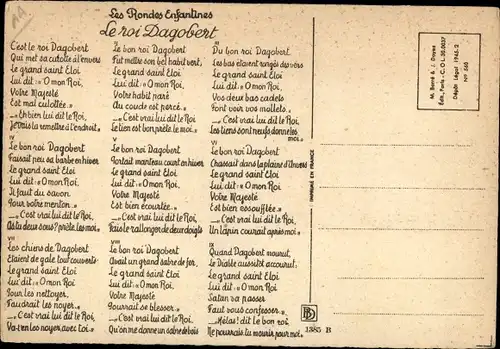 Les Rondes Enfantines
Le roi Dagobert
C'est le roi Dagobert
Qui met sa culotte à l'envers
Le grand saint Eloi
Lui dit: «O mon Roi,
Votre Majesté
Est mal culottée.»
_«Eh bien lui dit le Roi,
Je vais la remettre à l'endroit.»
Le bon roi Dagobert
Fut mettre son bel habit vert,
Le grand saint Eloi
Lui dit: «O mon Roi,
Votre habit paré
Au coude est percé.»
_«C'est vrai lui dit le Roi,
Le tien est bon prête le moi.»
III
Du bon roi Dagobert
Les bas étaient rongés des vers
Le grand saint Eloi
Lui dit: «O mon Roi,
Vos deux bas cadets
Font voir vos mollets.»
_«C'est vrai lui dit le Roi,
Les tiens sont neufs donnes les
moi.»
IV
Le bon roi Dagobert
Faisait peu sa barbe en hiver
Le grand saint Eloi
Lui dit: «O mon Roi,
Il faut du savon
Pour votre menton.»
_«C'est vrai lui dit le Roi,
As tu deux sous? prête les moi.»
V
Le bon roi Dagobert
Portait manteau court en hiver
Le grand saint Eloi
Lui dit: «O mon Roi,
Votre Majesté
Est bien écourtée.»
_«C'est vrai lui dit le Roi,
Fais le rallonger de deux doigts
VI
Le bon roi Dagobert
Chassait dans la plaine d'Anvers
Le grand saint Eloi
Lui dit: «O mon Roi,
Votre Majesté
Est bien essoufflée.»
_«C'est vrai lui dit le Roi,
Un lapin courait après moi.»
VII
Les chiens de Dagobert
Etaient de gale tout couverts
Le grand saint Eloi
Lui dit: «O mon Roi,
Pour les nettoyer,
Faudrait les noyer.»
_«C'est vrai lui dit le Roi,
Va-t-en les noyer avec toi.»
VIII
Le bon roi Dagobert
Avait un grand sabre de fer,
Le grand saint Eloi
Lui dit: «O mon Roi,
Votre Majesté
Pourrait se blesser.»
_«C'est vrai lui dit le Roi,
Qu'on me donne un sabre de bois
IX
Quand Dagobert mourut,
Le Diable aussitôt accourut,
Le grand saint Eloi
Lui dit: «O mon Roi,
Satan va passer
Faut vous confesser.»
_«Hélas! dit le bon roi
Ne pourrais tu mourir pour moi.»
IMPRIMÉ EN FRANCE
M. Barré & J. Dayez
Édit. Paris - C.O.L. 30.0057
Dépôt Légal 1945-2
N° 560
BD
1385 B